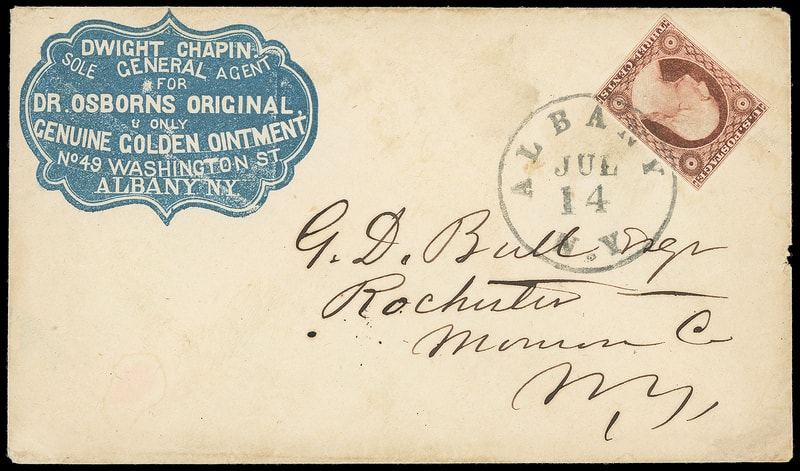 DWIGHT CHAPIN.
SOLE GENERAL AGENT
FOR
DR. OSBORNS ORIGINAL
& ONLY
GENUINE GOLDEN OINTMENT
No 49 WASHINGTON ST
ALBANY. NY.
U.S. POSTAGE
THREE CENTS
ALBANY
JUL
14
N.Y.
G. D. Bull Esqr
Rochester
Monroe Co
N.Y.